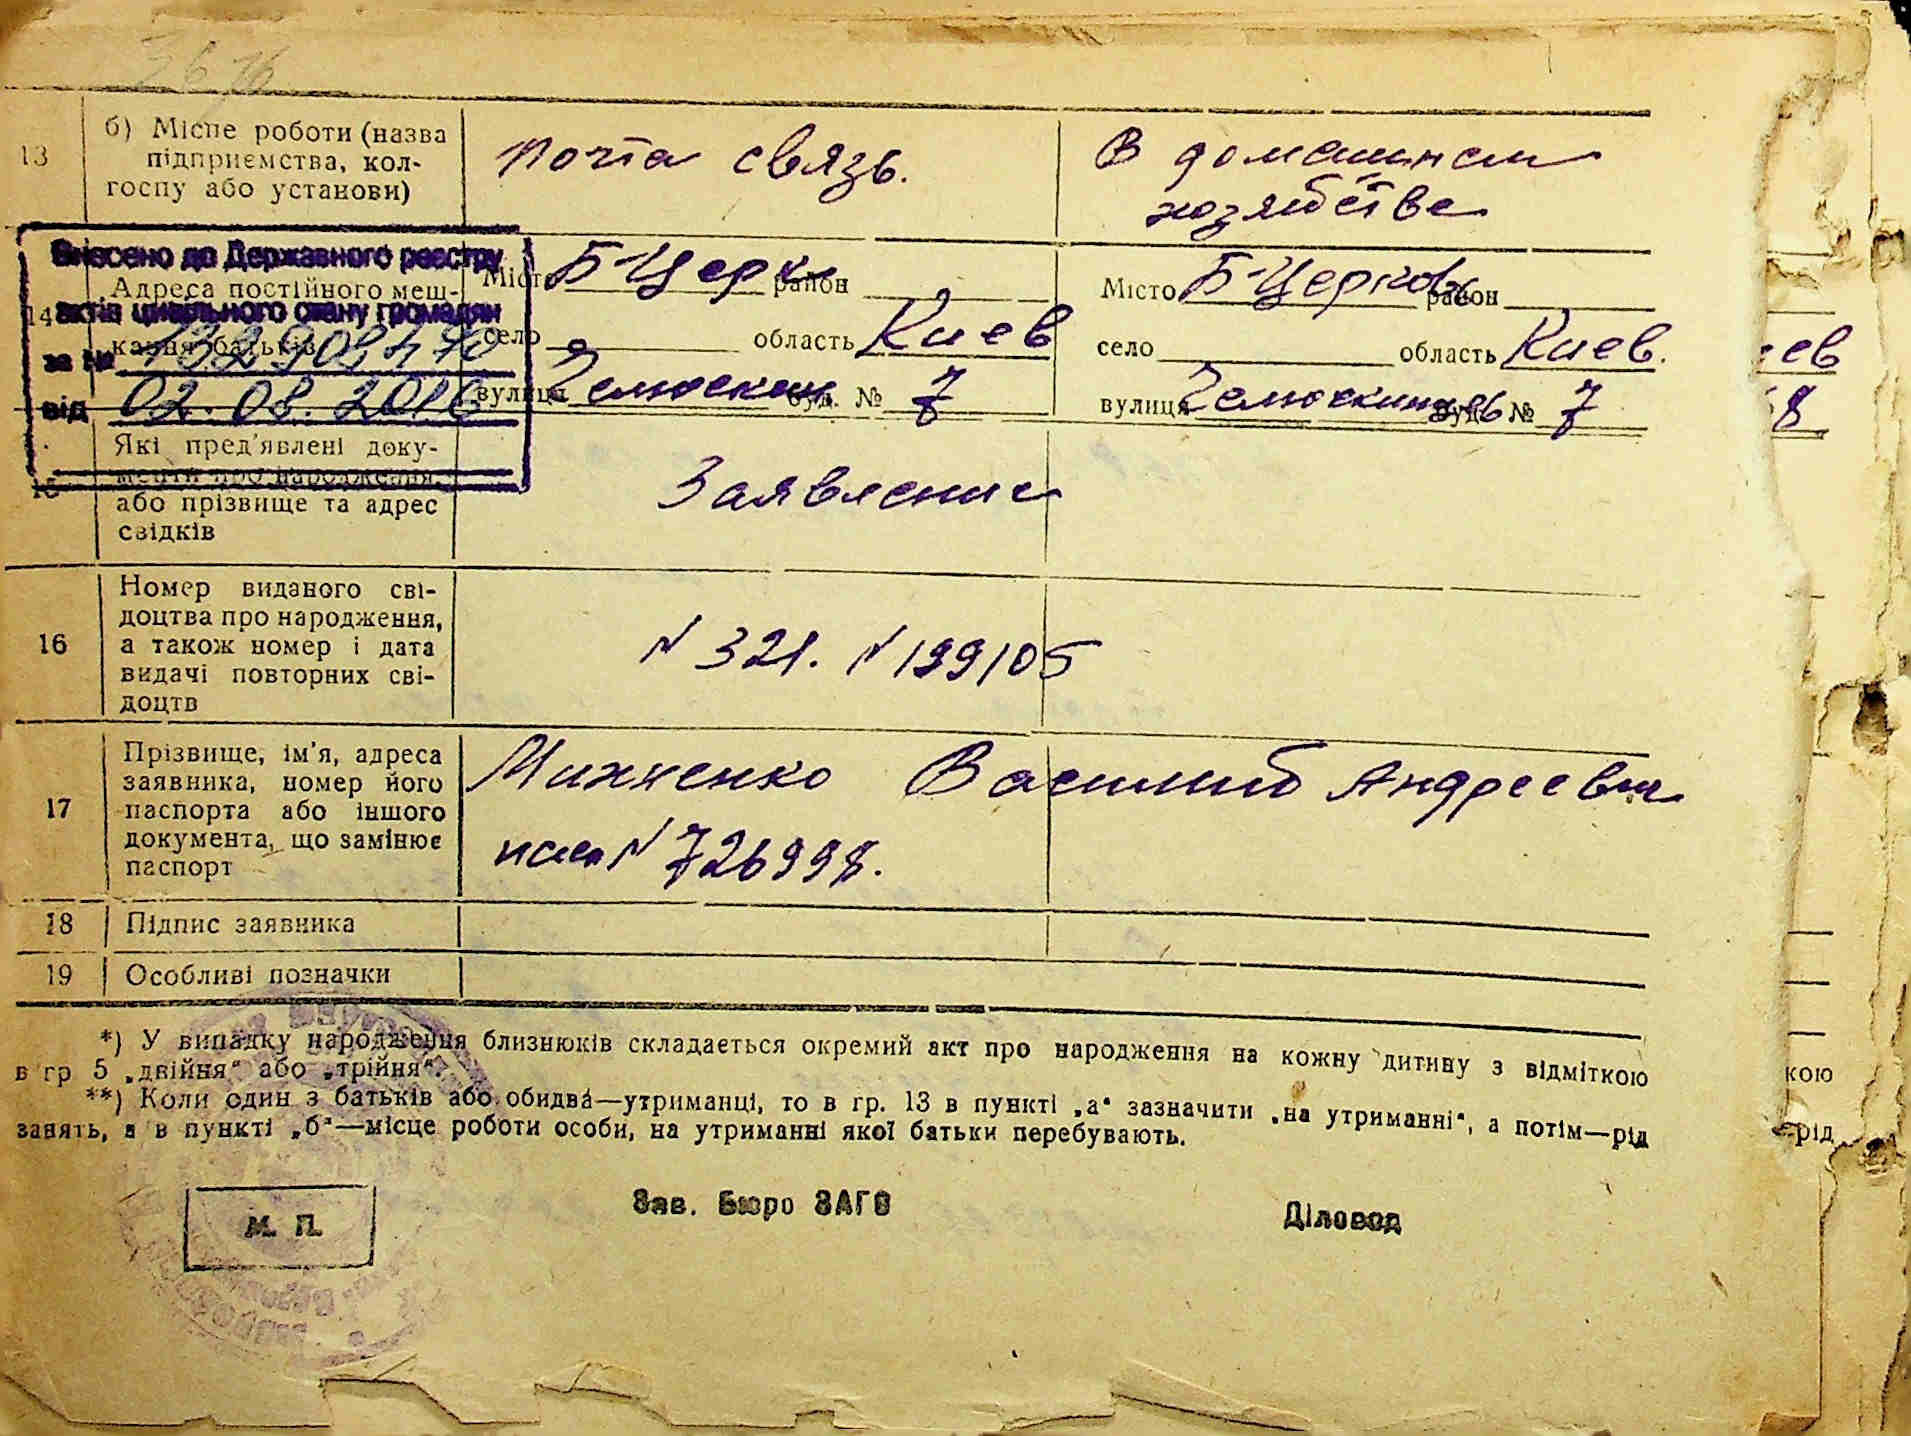 13
б) Місце роботи (назва
підприємства, кол-
госпу або установи)
почта связь.
В домашнем
хозяйстве
Внесено до Державного реєстру
актів цивільного стану громадян
за №
від 02.08.2016
14
Адреса постійного меш-
кання батьків
Місто Б-Церк район
село область Киев
вулиця Челюскин буд. № 7
Місто Б-Церковь район
село область Киев.
вулиця Челюскинцев буд. № 7
15
Які пред'явлені доку-
менти про народження,
або прізвище та адрес
свідків
Заявление
16
Номер виданого сві-
доцтва про народження,
а також номер і дата
видачі повторних сві-
доцтв
N 321. N 199105
17
Прізвище, ім'я, адреса
заявника, номер його
паспорта або іншого
документа, що замінює
паспорт
Василий Андреевич
N 726998.
18 Підпис заявника
19 Особливі позначки
*) У випадку народження близнюків складається окремий акт про народження на кожну дитину з відміткою
в гр 5 „двійня“ або „трійня“.
**) Коли один з батьків або обидва—утриманці, то в гр. 13 в пункті „а“ зазначити „на утриманні“, а потім—рід
занять, а в пункті „б“—місце роботи особи, на утриманні якої батьки перебувають.
М. П.
Зав. Бюро ЗАГС
Діловод
ев
кою
рід